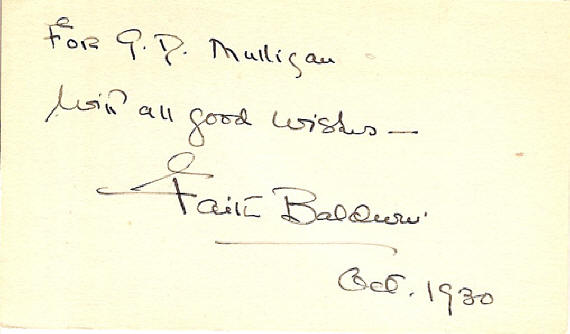 For G. D. Mulligan
With all good wishes —
Faith Baldwin
Oct. 1930